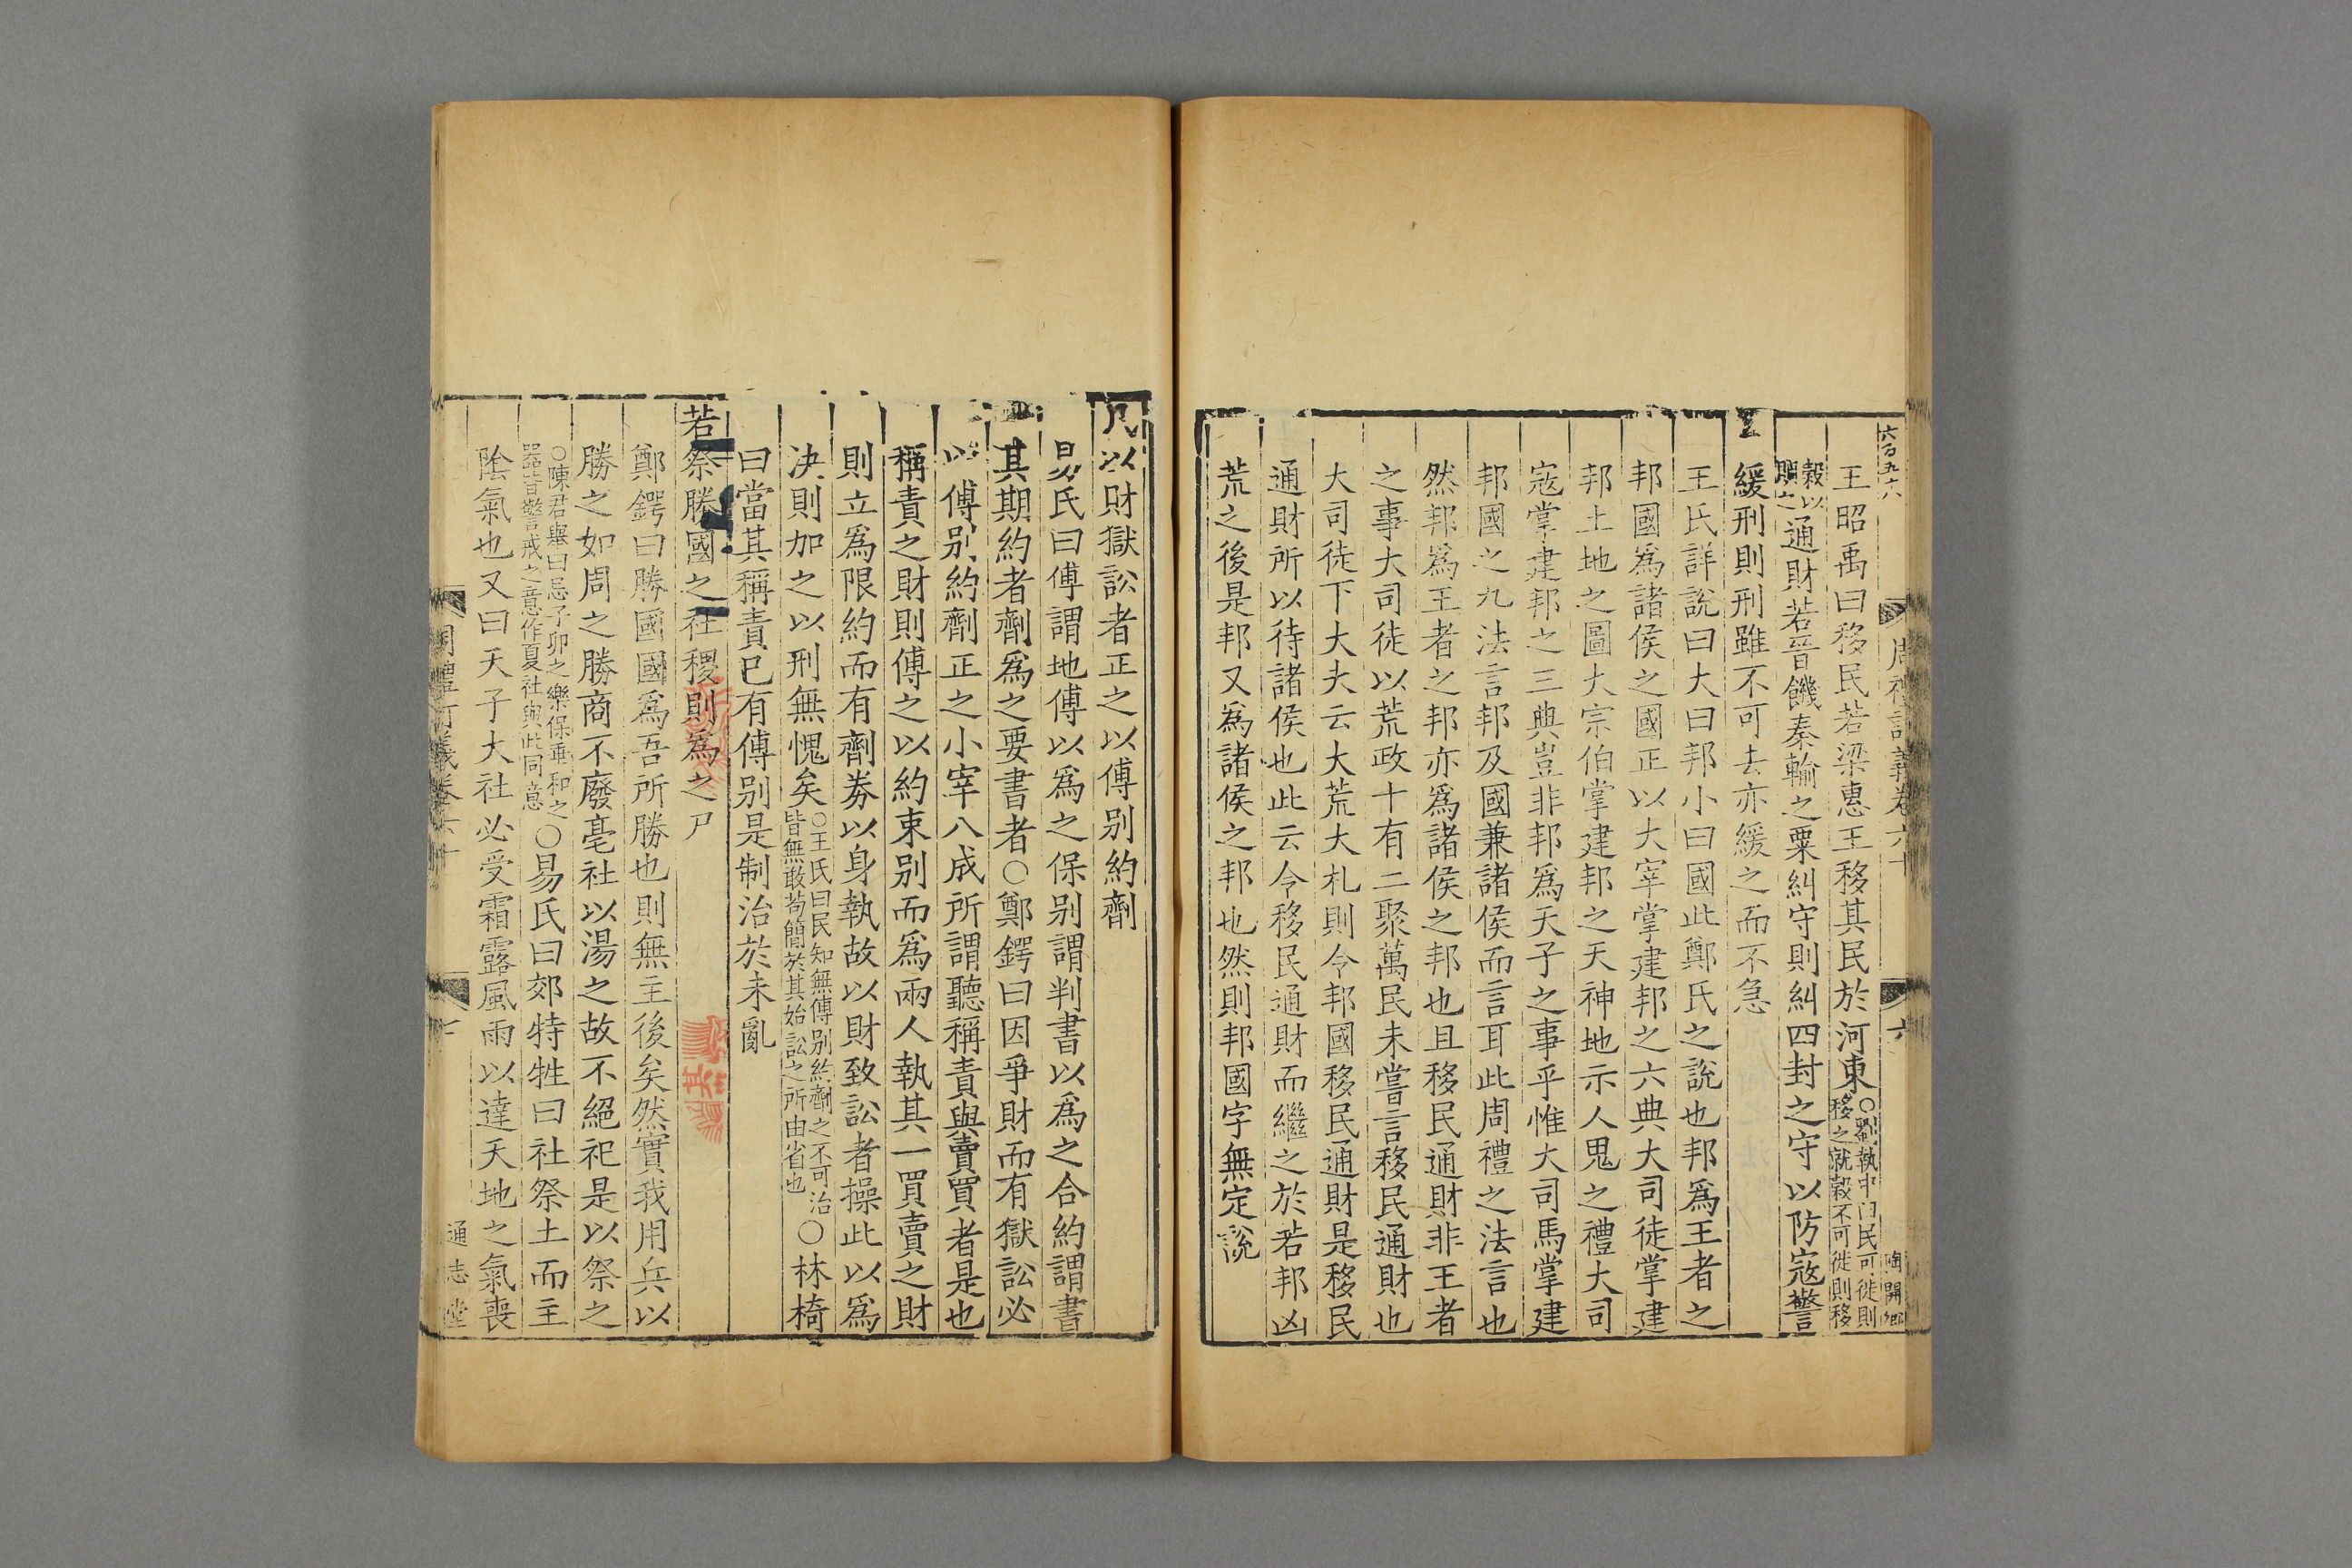 六百五六
周禮訂義卷六十
六
陶開卿
王昭禹曰移民若梁惠王移其民於河東○劉執中曰民可徙則
移之就穀不可徙則移
穀以
賙之通財若晉饑秦輸之粟糾守則糾四封之守以防寇警
緩刑則刑雖不可去亦緩之而不急
王氏詳說曰大曰邦小曰國此鄭氏之說也邦爲王者之
邦國爲諸侯之國正以大宰掌建邦之六典大司徒掌建
邦土地之圖大宗伯掌建邦之天神地示人鬼之禮大司
寇掌建邦之三典豈非邦爲天子之事乎惟大司馬掌建
邦國之九法言邦及國兼諸侯而言耳此周禮之法言也
然邦爲王者之邦亦爲諸侯之邦也且移民通財非王者
之事大司徒以荒政十有二聚萬民未嘗言移民通財也
大司徒下大夫云大荒大札則令邦國移民通財是移民
通財所以待諸侯也此云令移民通財而繼之於若邦凶
荒之後是邦又爲諸侯之邦也然則邦國字無定說
凡以財獄訟者正之以傅别約劑
易氏曰傅謂地傅以爲之保别謂判書以爲之合約謂書
其期約者劑爲之要書者○鄭鍔曰因爭財而有獄訟必
以傅别約劑正之小宰八成所謂聽稱責與賣買者是也
稱責之財則傅之以約束别而爲兩人執其一買賣之財
則立爲限約而有劑劵以身執故以財致訟者操此以爲
决則加之以刑無愧矣○王氏曰民知無傅别約劑之不可治
皆無敢苟簡於其始訟之所由省也○林椅
曰當其稱責已有傅别是制治於未亂
若祭勝國之社稷則爲之尸
鄭鍔曰勝國國爲吾所勝也則無主後矣然實我用兵以
勝之如周之勝商不廢亳社以湯之故不絕祀是以祭之
○陳君舉曰忌子卯之樂保垂和之
器皆警戒之意作夏社與此同意○易氏曰郊特牲曰社祭土而主
陰氣也又曰天子大社必受霜露風雨以達天地之氣喪
周禮訂義卷六十
七
通志堂